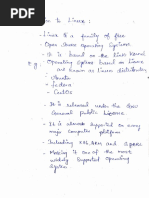 to Linux :
- Linux is a family of free
- Open source Operating Systems
- It is based on the Linux Kernel
- Operating Systems based on Linux
are known as Linux distributions
Ubuntu
Fedora
CentOS
- It is released under the GNU
General public License
- It is almost supported on every
major computer platform
- Including x86, ARM and Sparc
Making it one of the most
widely Supported operating
System